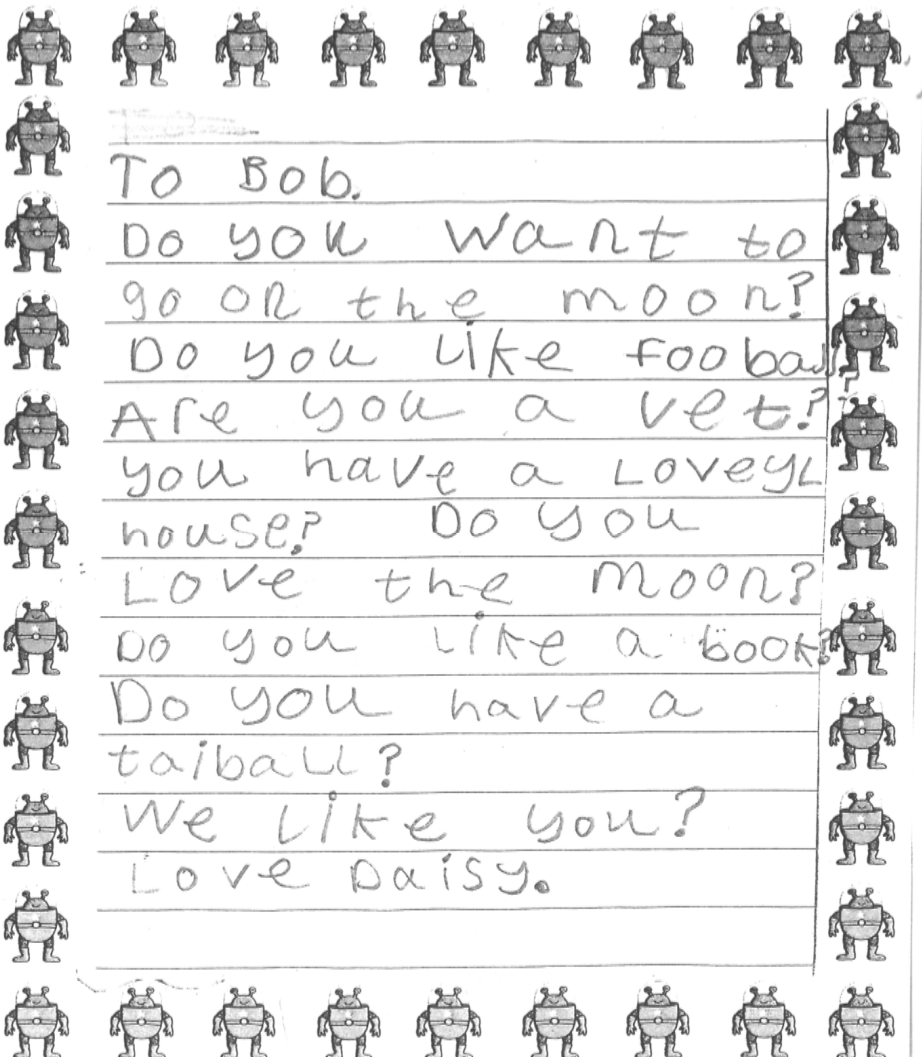 To Bob.
Do you want to
go on the moon?
Do you like fooball?
Are you a vet?
you have a Loveyl
house? Do you
Love the moon?
Do you like a book?
Do you have a
taiball?
We like you?
Love Daisy.